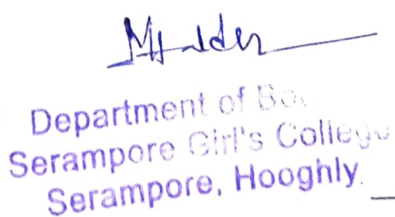 Department of
Serampore Girl's College
Serampore, Hooghly.